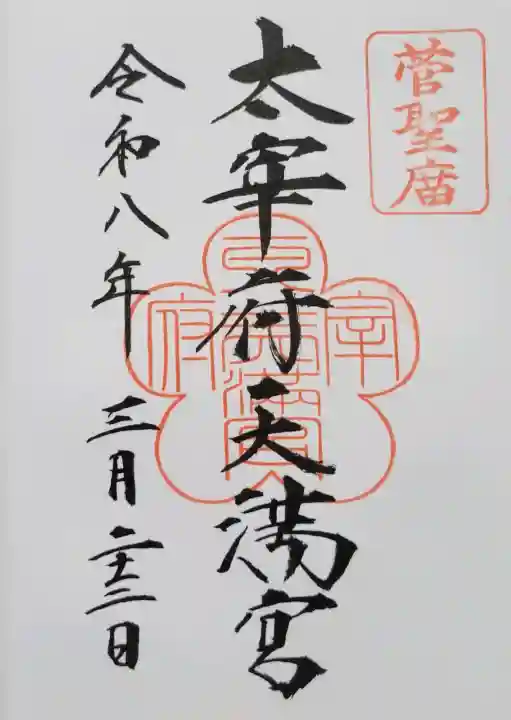 菅聖廟
太宰府天満宮
令和八年 三月二十三日